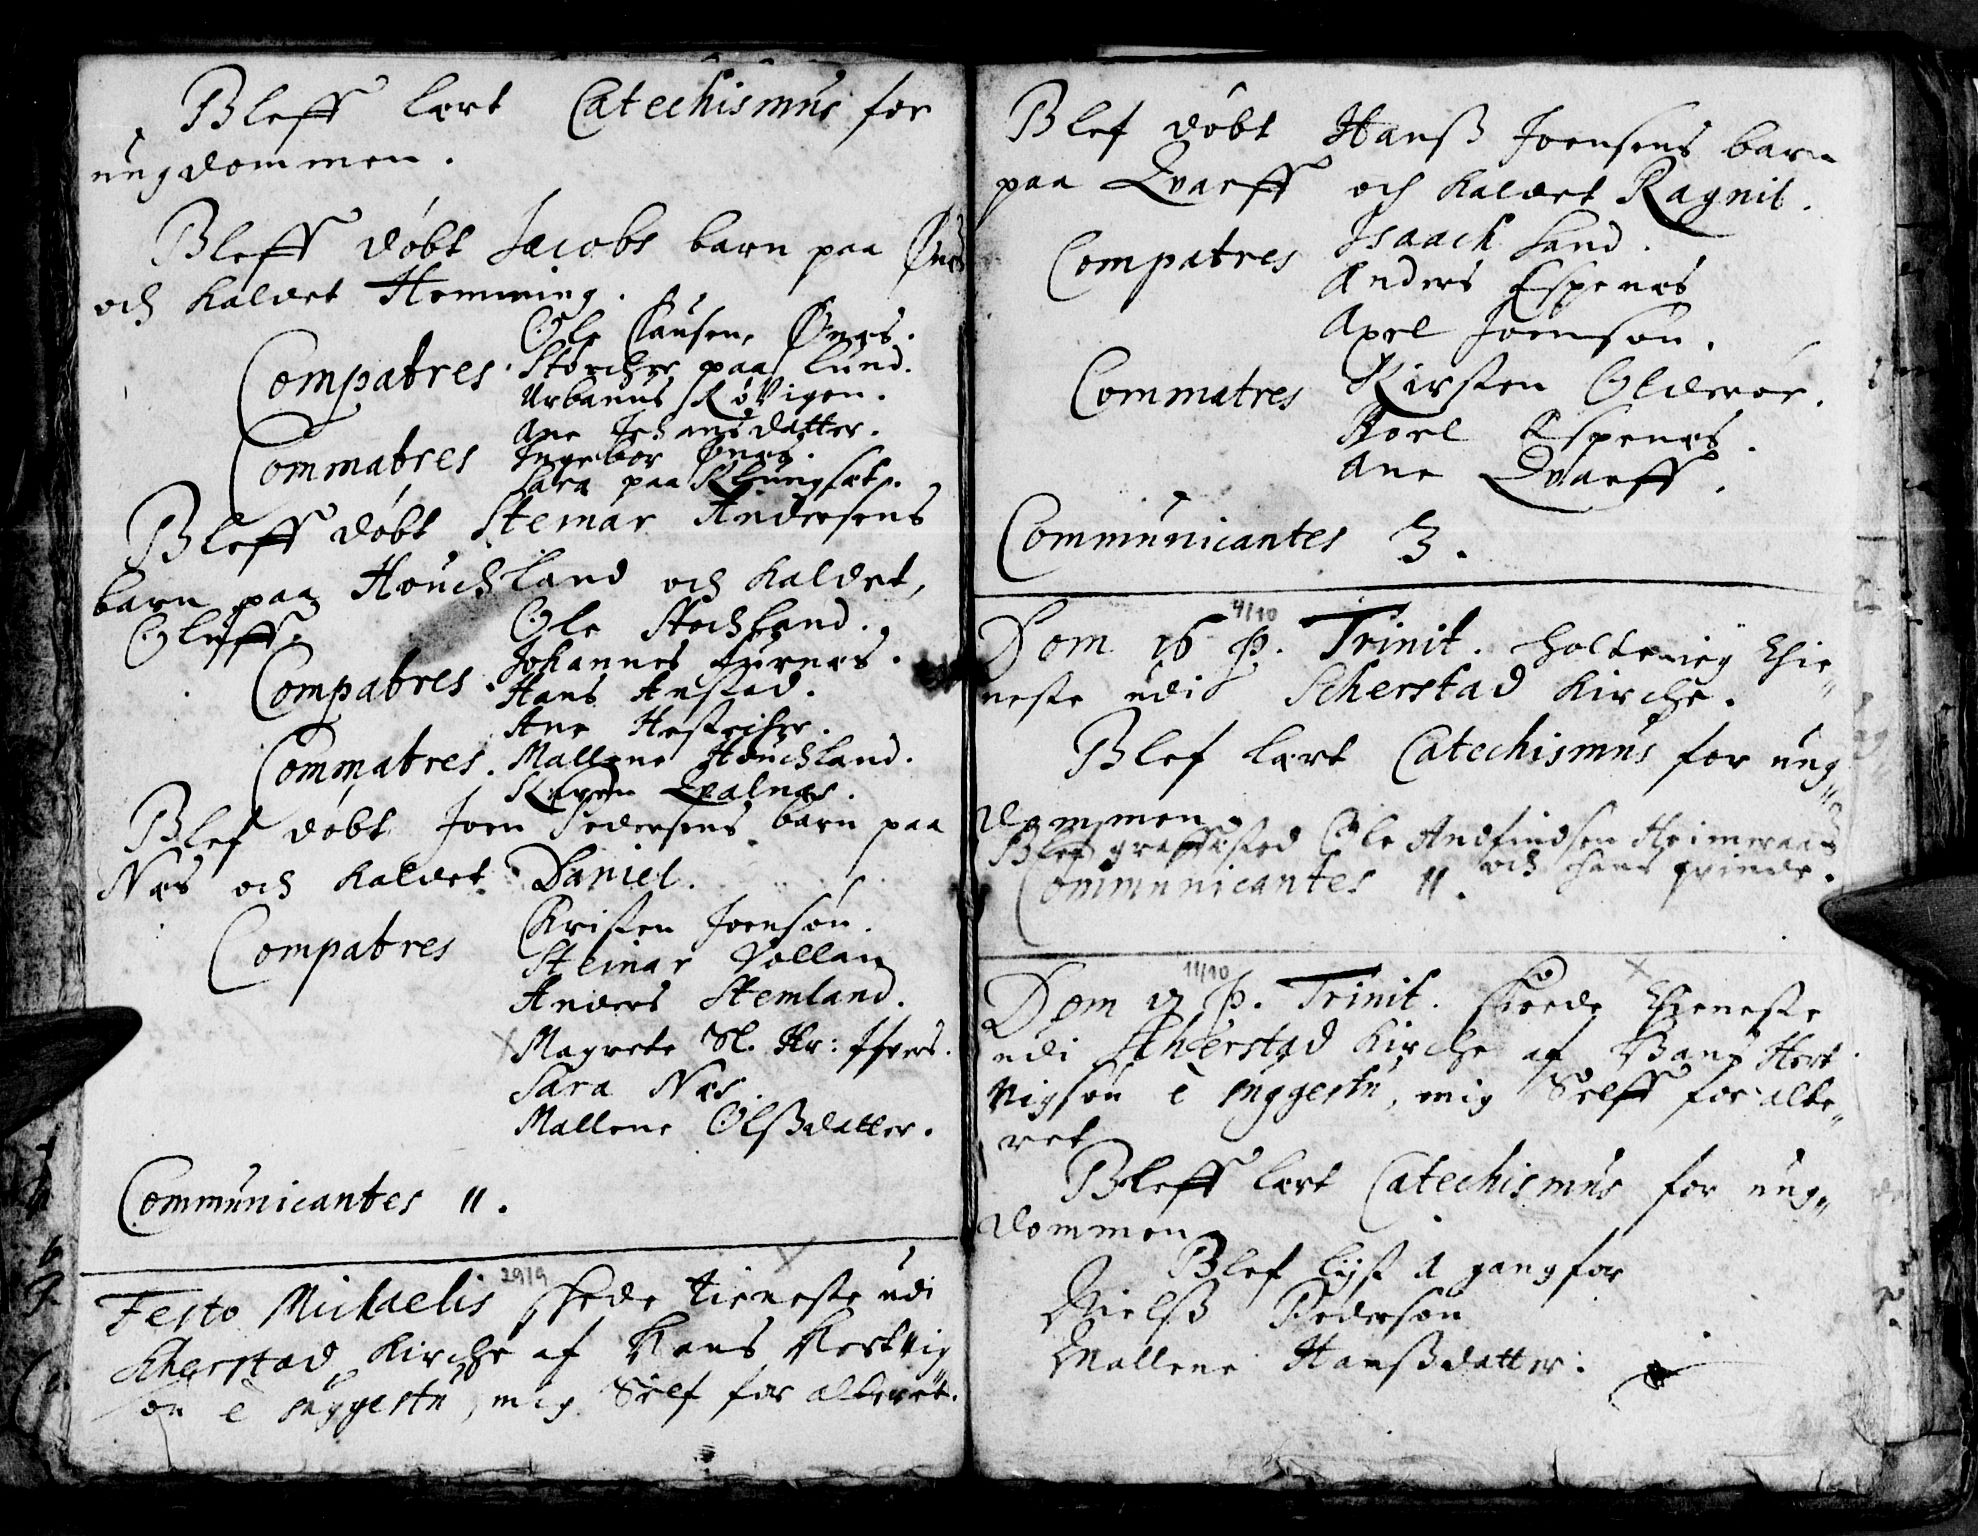 Bleff lært Catechismus for
ungdommen.
Bleff døbt Jacobs barn paa Ønæs
och kaldet Hemming.
Compatres. Ole Clausen Ønæs.
Størcher paa Lund.
Urbanus Røvigen.
Commatres Ane Johansdatter.
Ingebor Ønæs.
Sara paa Klungset.
Bleff døbt Steinar Andersens
barn paa Houchland och kaldet,
Oluff.
Compatres. Ole Hochland.
Johannes
Hans Anstad.
Commatres. Ane
Mallene Houchland.
Karen Qvalnæs.
Blef døbt Joen Pedersens barn paa
Næs och kaldet Daniel.
Compatres Christen Joensøn.
Steinar Vollan
Anders Stemland.
Magrete Sl. Hr: Ifvers.
Sara Næs.
Mallene Olsßdatter.
Communicantes 11.
Festo Michaelis 29/9 skede tieneste udi
Scherstad Kirche af Hans Hertvig
søn è suggestu, mig Sielf for alteret.
Blef døbt Hanß Joensens barn
paa Qvarff och kaldet Ragnil.
Compatres Isaach Sand.
Anders Espenæs
Axel Joensøn.
Commatres Kirsten Olderøe.
Borel Espenæs.
Ane Qvarff.
Communicantes 3.
4/10
Dom 16 p. Trinit. holt mig thie„
neste udi Scherstad Kirche.
Blef lært Catechismus for ung„
dommen.
Blef graffæsted Ole Andfindsen Heimraas
och hans qvinde.
Communicantes 11.
11/10
Dom 17 p. Trinit. skeede thieneste
udi Scherstad Kirche af Hans Hert
vigsøn è suggestu, mig Sielff for alte„
ret
Bleff lært Catechismus for ung„
dommen
Blef lyst 1 gang for
Nielß Pedersøn
Mallene Hanßdatter.